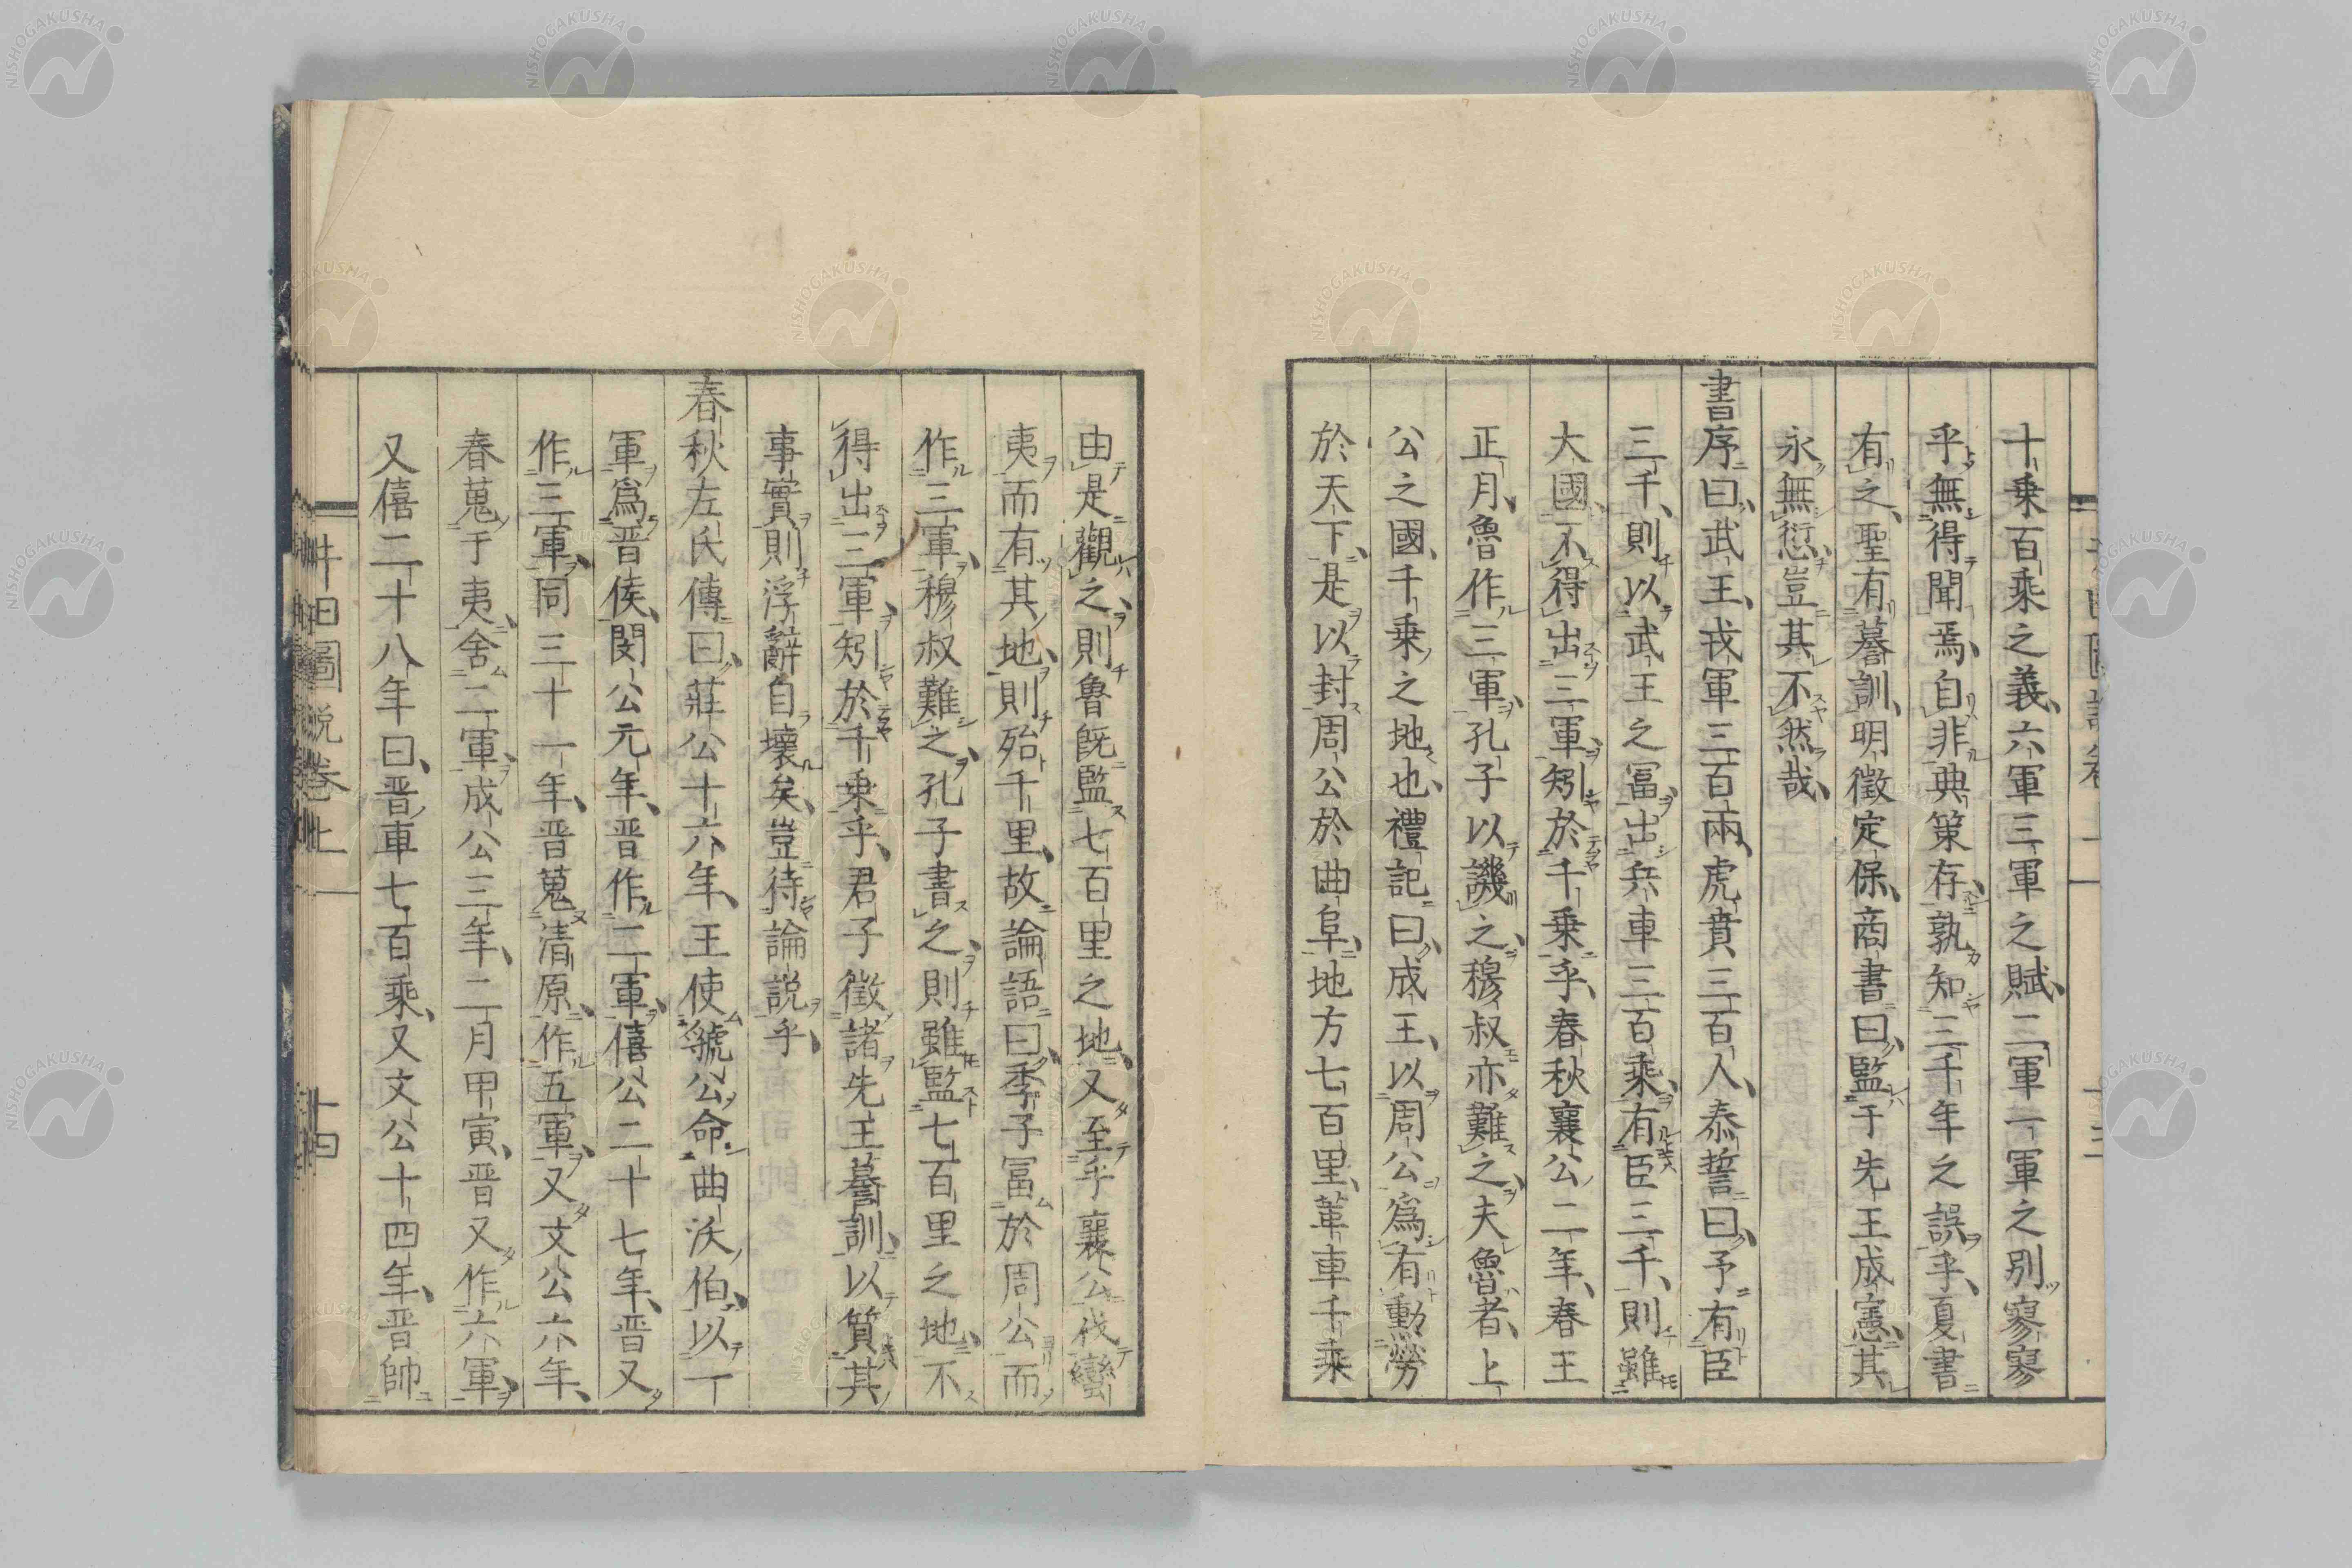 十乗百乘之義、六軍三軍之賦、二軍一軍之別寥寥
乎無得聞焉、自非典策存、孰知三千年之誤乎、夏書
有之、聖有謩訓、明徵定保、商書曰、監于先王成憲、其
永無愆、豈其不然哉、
書序曰、武王、戎軍三百兩、虎賁三百人、泰誓曰、予有臣
三千、則以武王之冨、出兵車三百乘、有臣三千、則雖
大國、不得出三軍、矧於千乗乎、春秋襄公二年、春王
正月、魯作三軍、孔子以譏之、穆叔亦難之、夫魯者、上
公之國、千乗之地也、禮記曰、成王、以周公爲有勳勞
於天下、是以封周公於曲阜、地方七百里、革車千乘
由是觀之、則魯既監七百里之地、又至乎襄公伐蠻
夷而有其地、則殆千里、故論語曰、季子冨於周公而
作三軍、穆叔難之、孔子書之、則雖監七百里之地、不
得出三軍、矧於千乗乎、君子徵諸先王謩訓、以質其
事實則浮辭自壞矣、豈待論説乎、
春秋左氏傳曰、莊公十六年、王使虢公命曲沃伯、以一
軍爲晋侯、閔公元年、晋作二軍、僖公二十七年、晋又
作三軍、同三十一年、晋蒐清原、作五軍、又文公六年、
春蒐于夷、舍二軍、成公三年、二月甲寅、晋又作六軍、
又僖二十八年曰、晋車七百乘、又文公十四年、晋帥
井田圖説卷上
十四
NISHOGAKUSHA